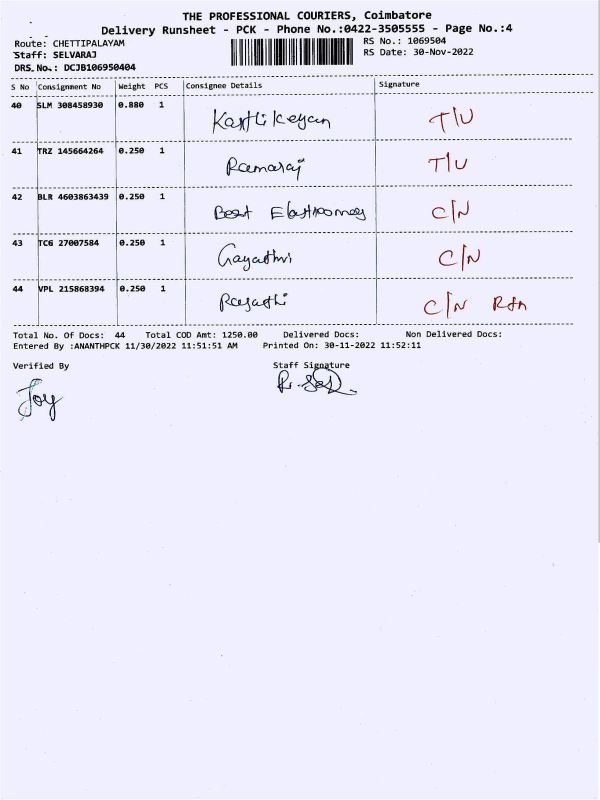 THE PROFESSIONAL COURIERS, Coimbatore
Delivery Runsheet - PCK - Phone No.:0422-3505555 - Page No.:4
Route: CHETTIPALAYAM RS No.: 1069504
Staff: SELVARAJ RS Date: 30-Nov-2022
DRS.No.: DCJB106950404
S No Consignment No Weight PCS Consignee Details Signature
40 SLM 308458930 0.880 1 Karthikeyan T/U
41 TRZ 145664264 0.250 1 Ramaraj T/U
42 BLR 4603863439 0.250 1 Best Elastomers C/N
43 TCG 27007584 0.250 1 Gayathri C/N
44 VPL 215868394 0.250 1 Rajathi C/N
Total No. Of Docs: 44 Total COD Amt: 1250.00 Delivered Docs: Non Delivered Docs:
Entered By :ANANTHPCK 11/30/2022 11:51:51 AM Printed On: 30-11-2022 11:52:11
Verified By Staff Signature
Joy